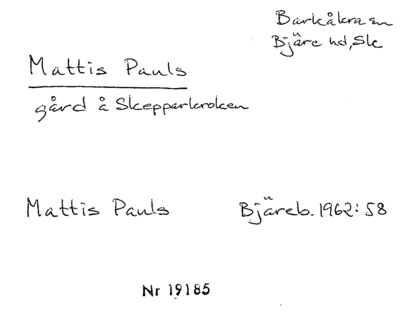 Barkåkra sn
Bjäre hd, Sk
Mattis Pauls
gård å Skepparkroken
Mattis Pauls Bjäreb. 1962: 58
Nr 19185